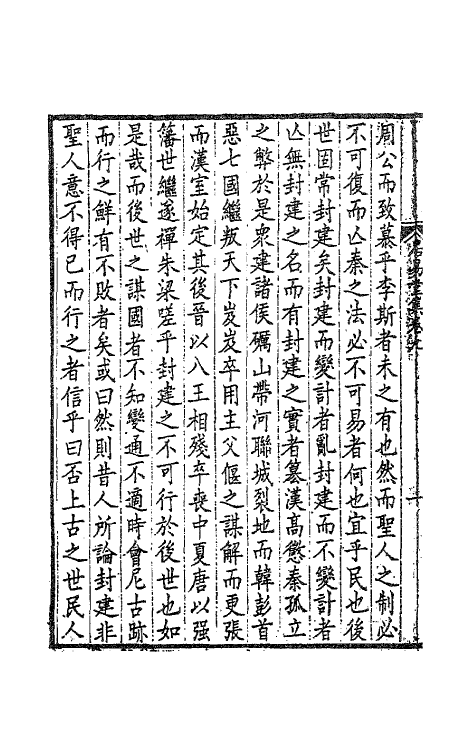 周公而致慕乎李斯者未之有也然而聖人之制必
不可復而亾秦之法必不可易者何也宜乎民也後
世固常封建矣封建而變計者亂封建而不變計者
亾無封建之名而有封建之實者篡漢高懲秦孤立
之弊於是衆建諸侯礪山帶河聯城裂地而韓彭首
惡七國繼叛天下岌岌卒用主父偃之謀解而更張
而漢室始定其後晉以八王相殘卒喪中夏唐以强
籓世繼遂禪朱梁嗟乎封建之不可行於後世也如
是哉而後世之謀國者不知變通不適時會尼古跡
而行之鮮有不敗者矣或曰然則昔人所論封建非
聖人意不得已而行之者信乎曰否上古之世民人